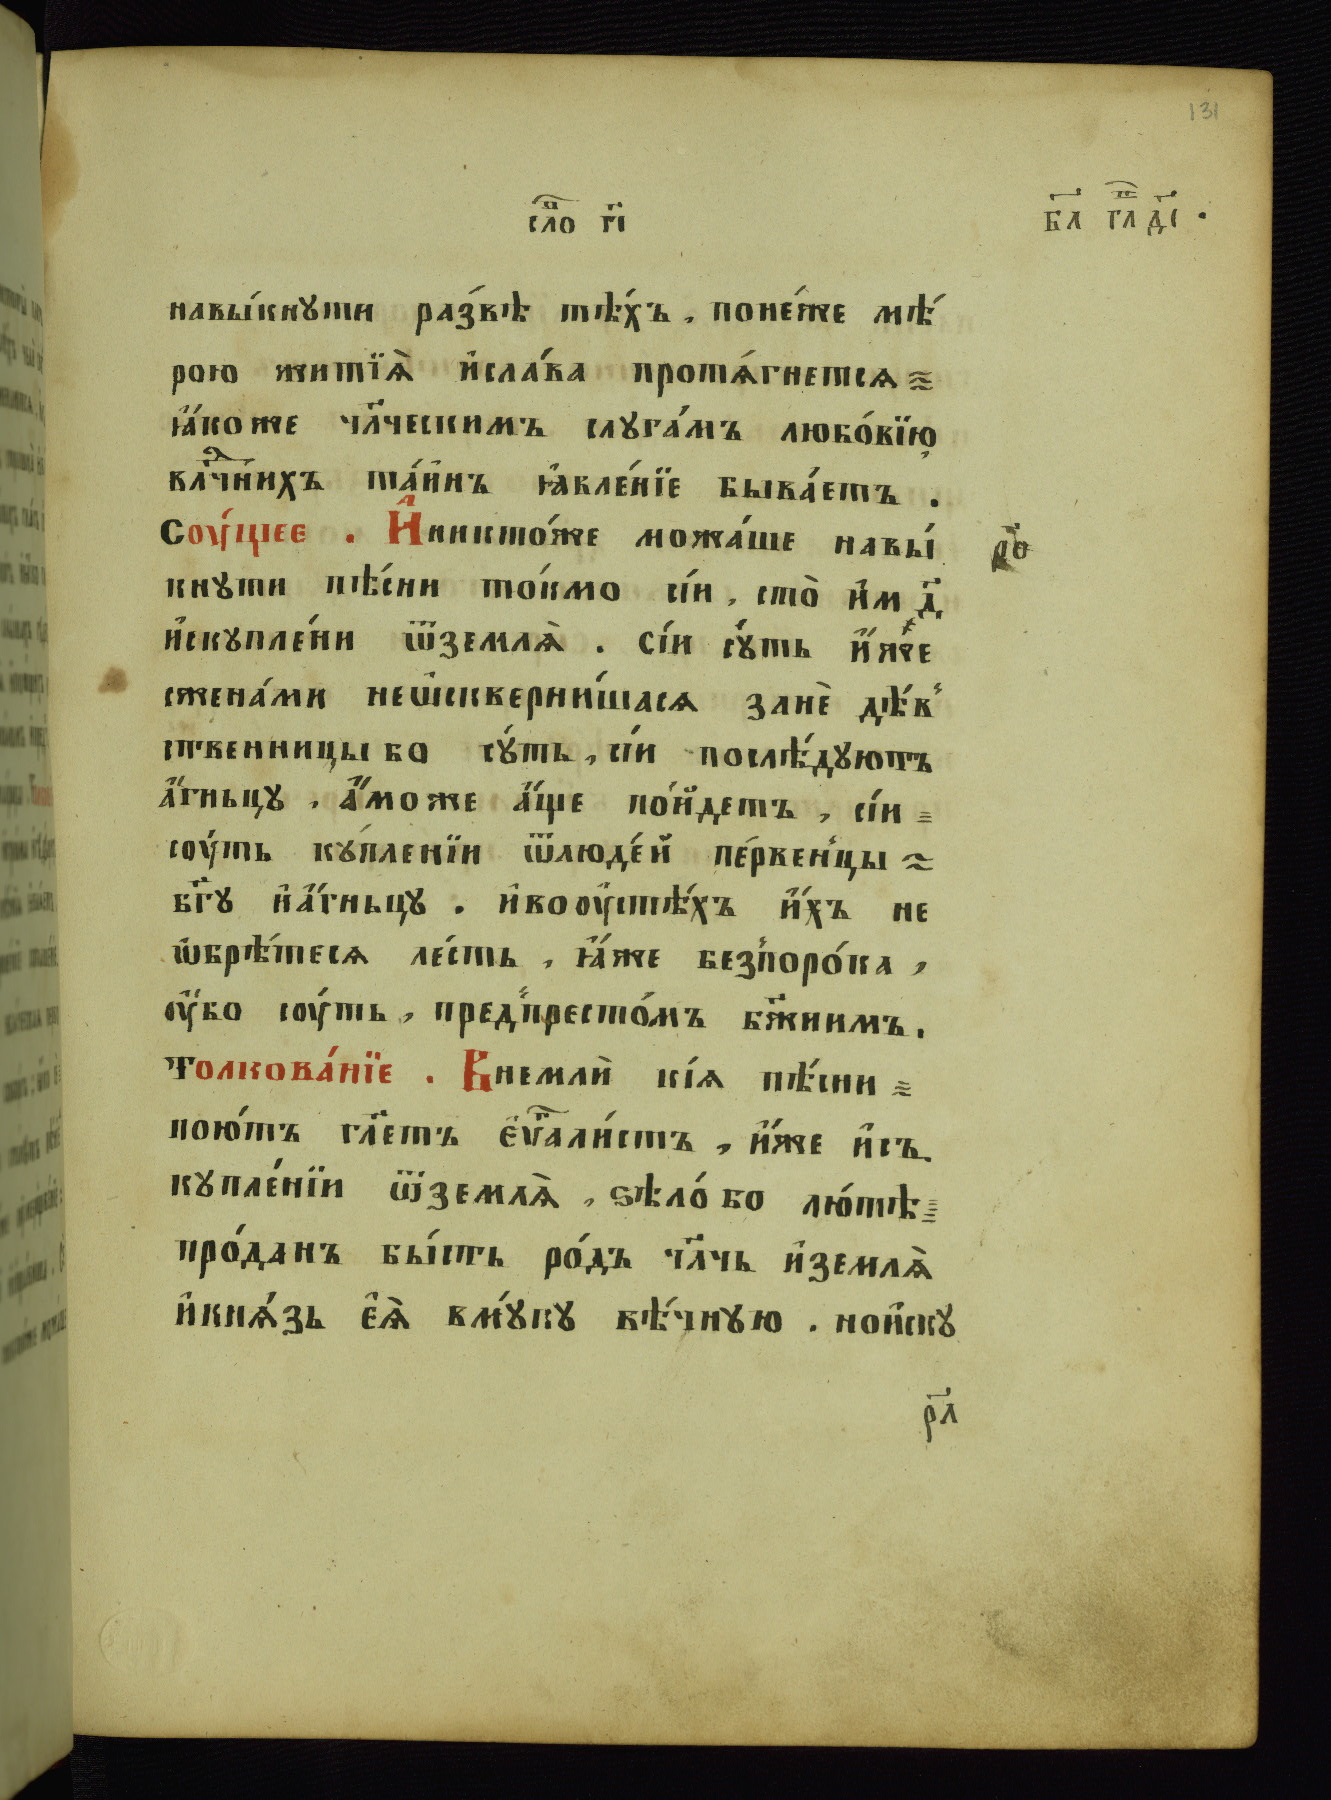 131
сло́ гі
бл҃ гл҃ ді .
навы́кнути ра́звѣ тѣ́хъ , поне́же мѣ́
рою житїѧ̀ и҆сла́ва протѧ́гнетсѧ
ꙗ҆́коже чл҃ческимъ слуга́мъ любо́вїю
влⷣчнихъ та́инъ ꙗ҆вле́нїе быва́етъ .
Соу́щее . И҆никто́же можа́ше навы́
кнути пѣ́сни то́кмо сі́и , сто̀ и҆м д҃
и҆скупле́ни ѿземлѧ̀ . Сі́и су́ть и҆́же
сжена́ми неѡ҆скверни́шасѧ занѐ дѣ́в
ственницы бо су́ть , сі́и послѣ́дуютъ
а҆́гньцу , а҆́може а҆́ще по́йдетъ , сі́и
соу́ть ку́пленїи ѿлюде́й пе́рвенцы
бг҃у и҆а҆́гньцу . и҆воо҆устѣ́хъ и҆́хъ не
ѡ҆брѣ́тесѧ ле́сть , ꙗ҆́же безпоро́ка ,
о҆у́бо соу́ть , предпресто́мъ бж҃иимъ .
Толкова́нїе . Внемлѝ кі́ѧ пѣ́сни
пою́тъ гл҃етъ є҆ѵⷢ҇али́стъ , и҆́же и҆съ
купле́нїи ѿземлѧ̀ , ѕѣло́ бо лю́тѣ
про́данъ бы́сть ро́дъ чл҃чь и҆землѧ̀
и҆кнѧ́зь є҆ѧ̀ вму́ку вѣ́чную . нои҆ску
рл҃